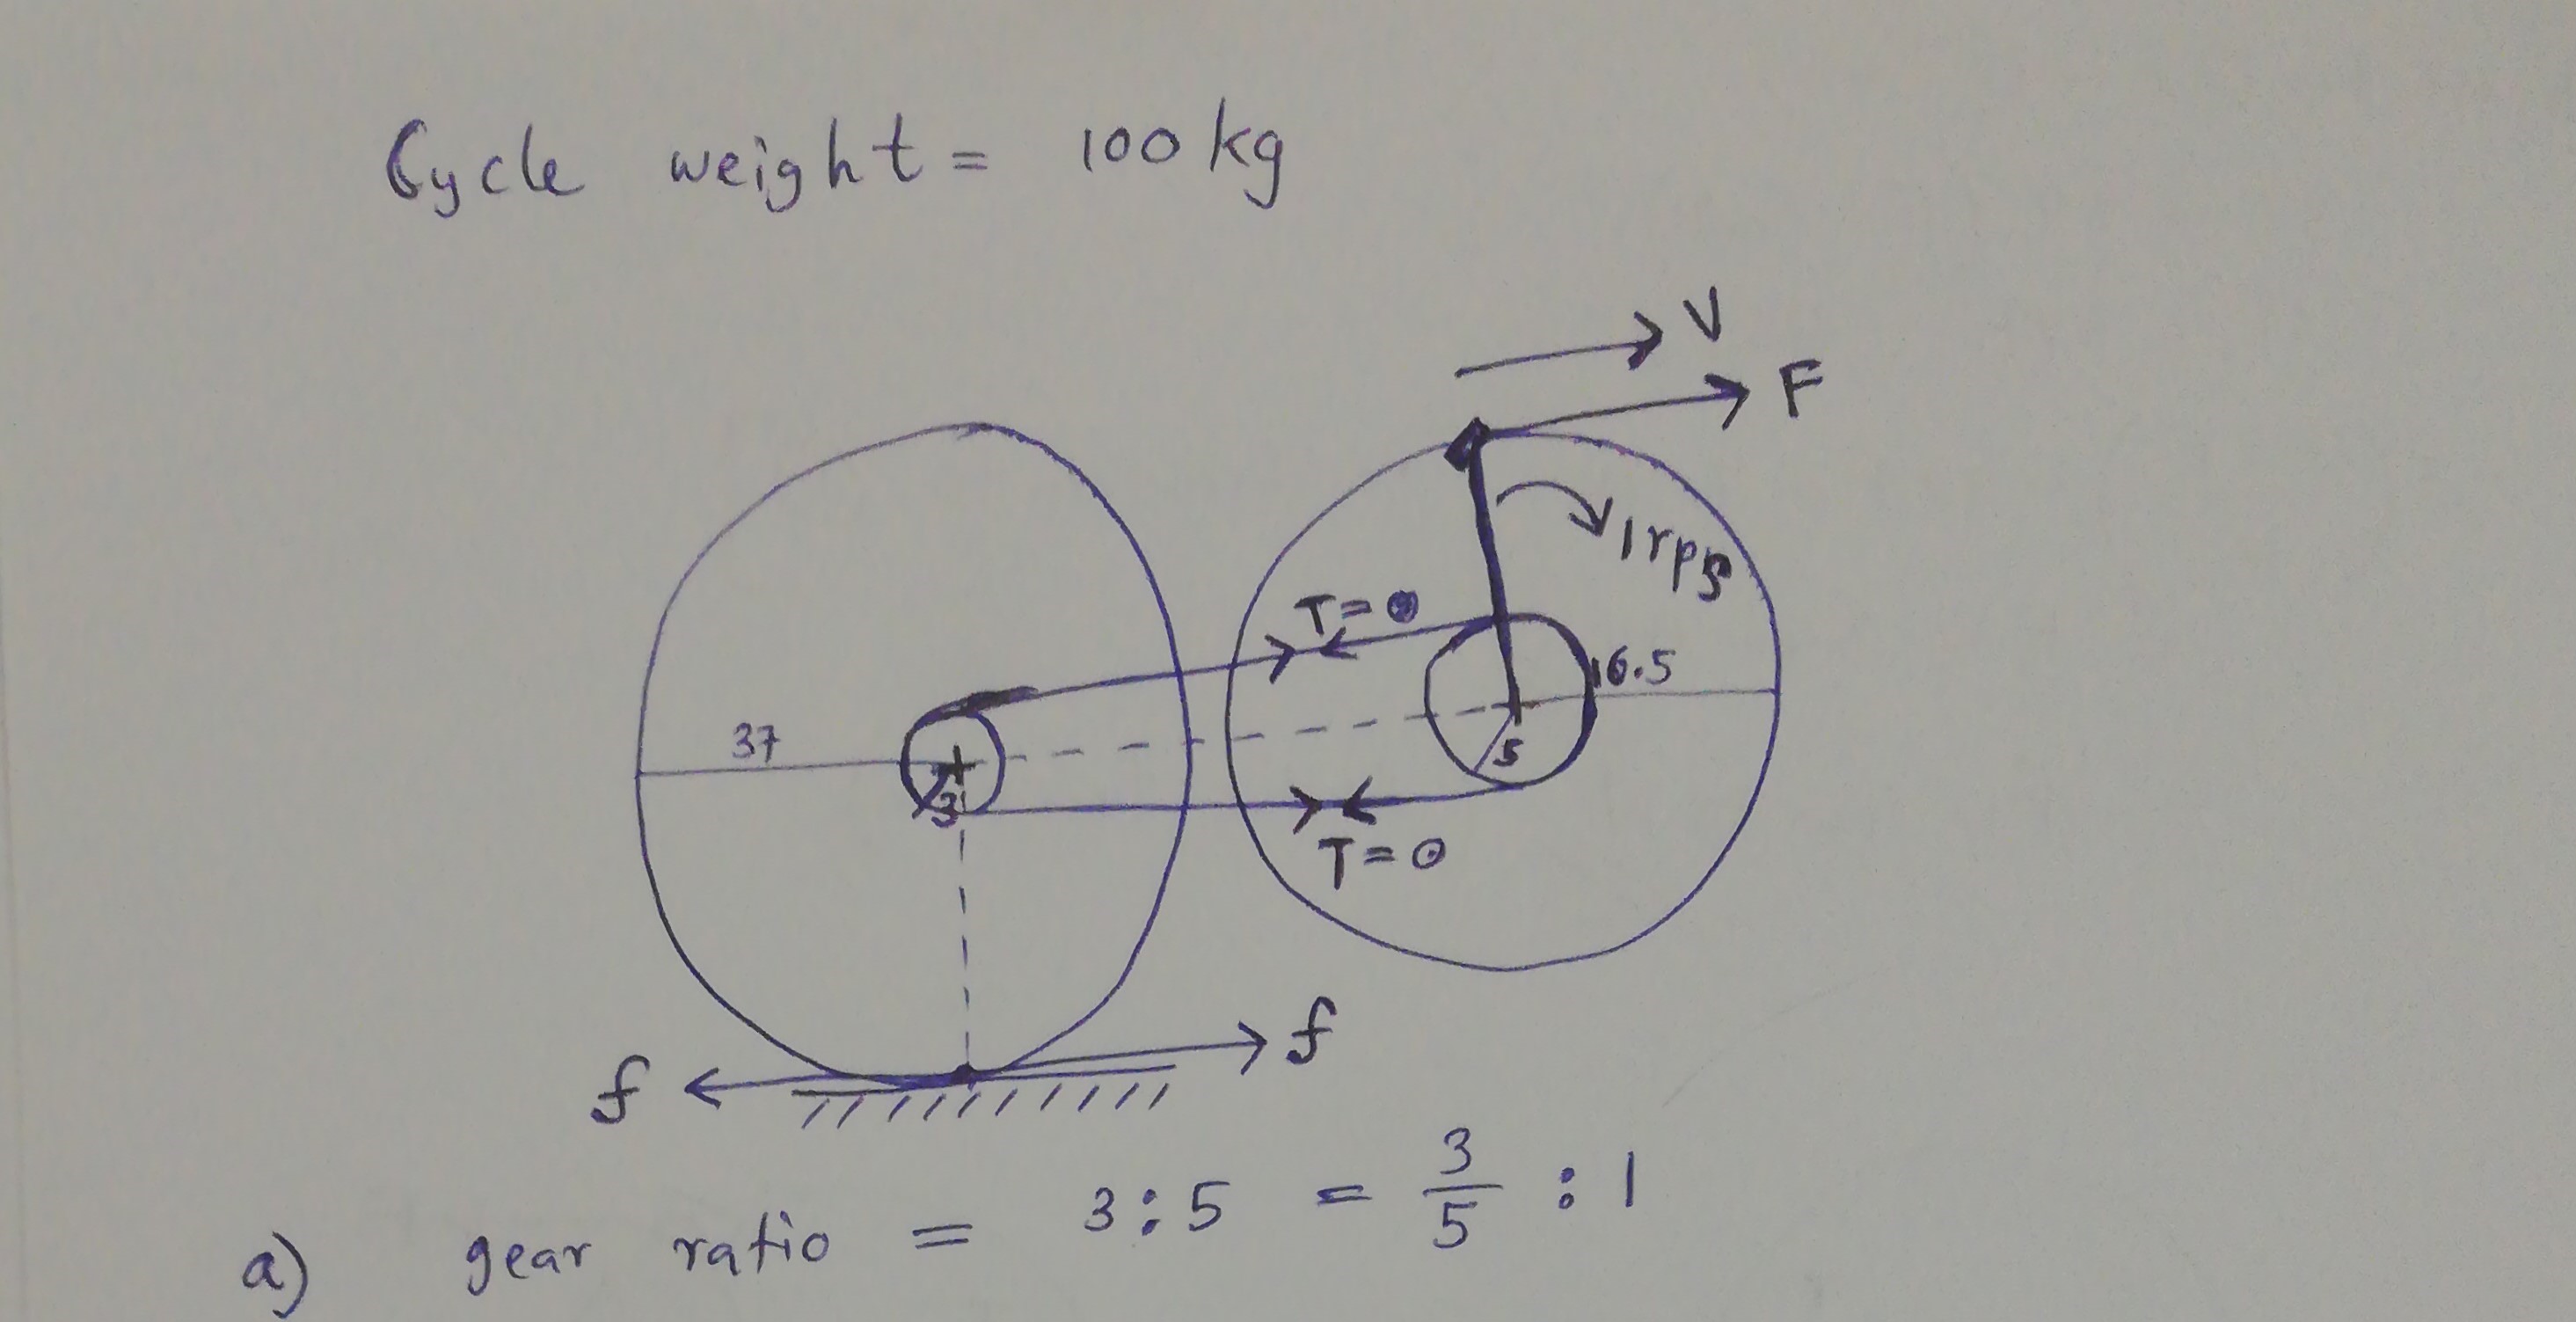 Cycle weight = 100 kg
V
F
1rps
T=0
16.5
37
5
3
T=0
f
f
a) gear ratio = 3:5 = 3/5 : 1